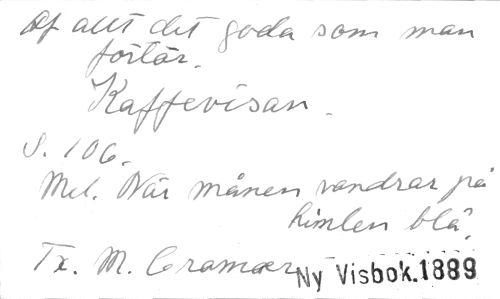 Af allt det goda som man
förtär.
Kaffevisan.
S. 106.
Mel. När månen vandrar på
himlen blå.
Tx. M. Cramær
Ny Visbok.1889